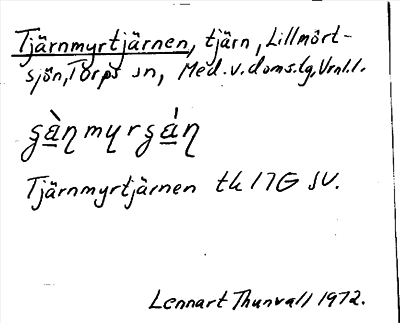 Tjärnmyrtjärnen, tjärn, Lillmört-
sjön, Torps sn, Med. v. doms.tg, Vrnl.l.
şà̱ƞmyrşá̱ƞ
Tjärnmyrtjärnen tk 17G SV.
Lennart Thunvall 1972.